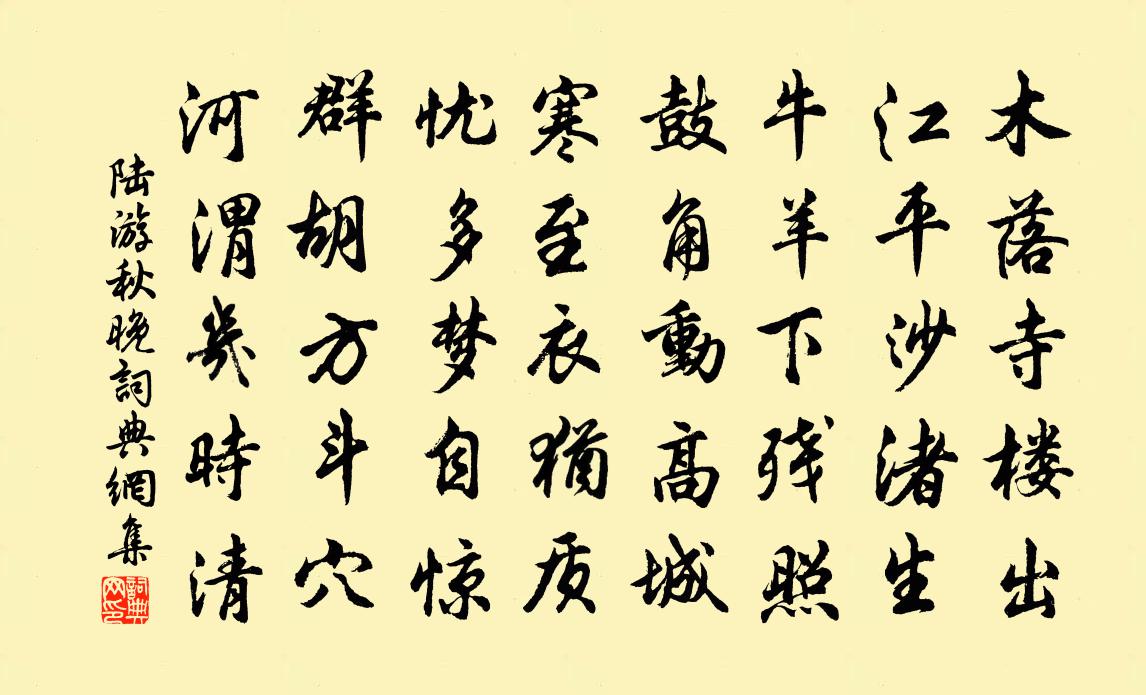 木落寺楼出
江平沙渚生
牛羊下残照
鼓角動高城
寒至衣猶质
忧多梦自惊
群胡方斗穴
河渭幾時清
陆游秋晚詞典網集
詞典网印